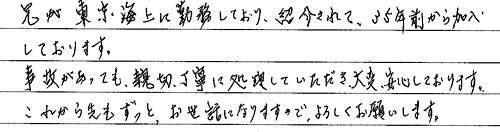 兄が東京海上に勤務しており、紹介されて、35年前から加入
しております。
事故があっても、親切、丁寧に処理していただき大変、安心しております。
これから先もずっと、お世話になりますので、よろしくお願いします。